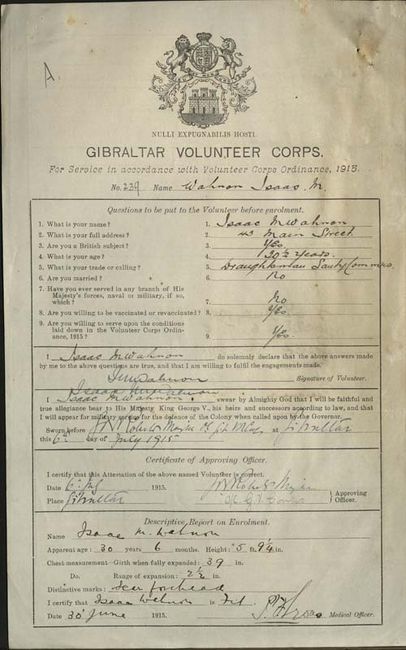 A.
NULLI EXPUGNABILIS HOSTI.
GIBRALTAR VOLUNTEER CORPS.
For Service in accordance with Volunteer Corps Ordinance, 1915.
No. 239 Name Wahnon Isaac M.
Questions to be put to the Volunteer before enrolment.
1. What is your name? 1. Isaac M Wahnon
2. What is your full address? 2. Main Street
3. Are you a British subject? 3. Yes
4. What is your age? 4. 30 ½ Years.
5. What is your trade or calling? 5. Draughtsman Sanity Commrs
6. Are you married? 6. No
7. Have you ever served in any branch of His
Majesty's forces, naval or military, if so,
which? 7. No
8. Are you willing to be vaccinated or revaccinated? 8. Yes.
9. Are you willing to serve upon the conditions
laid down in the Volunteer Corps Ordinance,
1915? 9. Yes
I Isaac M Wahnon do solemnly declare that the above answers made
by me to the above questions are true, and that I am willing to fulfil the engagements made.
Signature of Volunteer.
I Isaac M Wahnon swear by Almighty God that I will be faithful and
true allegiance bear to His Majesty King George V., his heirs and successors according to law, and that
I will appear for military service for the defence of the Colony when called upon by the Governor.
Sworn before at Gibraltar
this 6th day of July 1915
Certificate of Approving Officer.
I certify that this Attestation of the above named Volunteer is correct.
Date 6 July
Place Gibraltar
Approving
Officer.
Descriptive Report on Enrolment.
Name Isaac M. Wahnon
Apparent age: 30 years 6 months. Height: 5 ft. 9¼ in.
Chest measurement: Girth when fully expanded: 39 in.
Do. Range of expansion: 2½ in.
Distinctive marks: Scar forehead
I certify that Isaac Wahnon is Fit.
Date 30 June 1915.
Medical Officer.